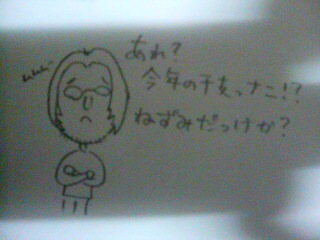 あれ?
今年の干支ってナニ!?
ねずみだっけか?